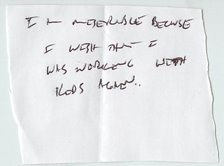 I am miserable because
I wish that I
was working with
kids again..